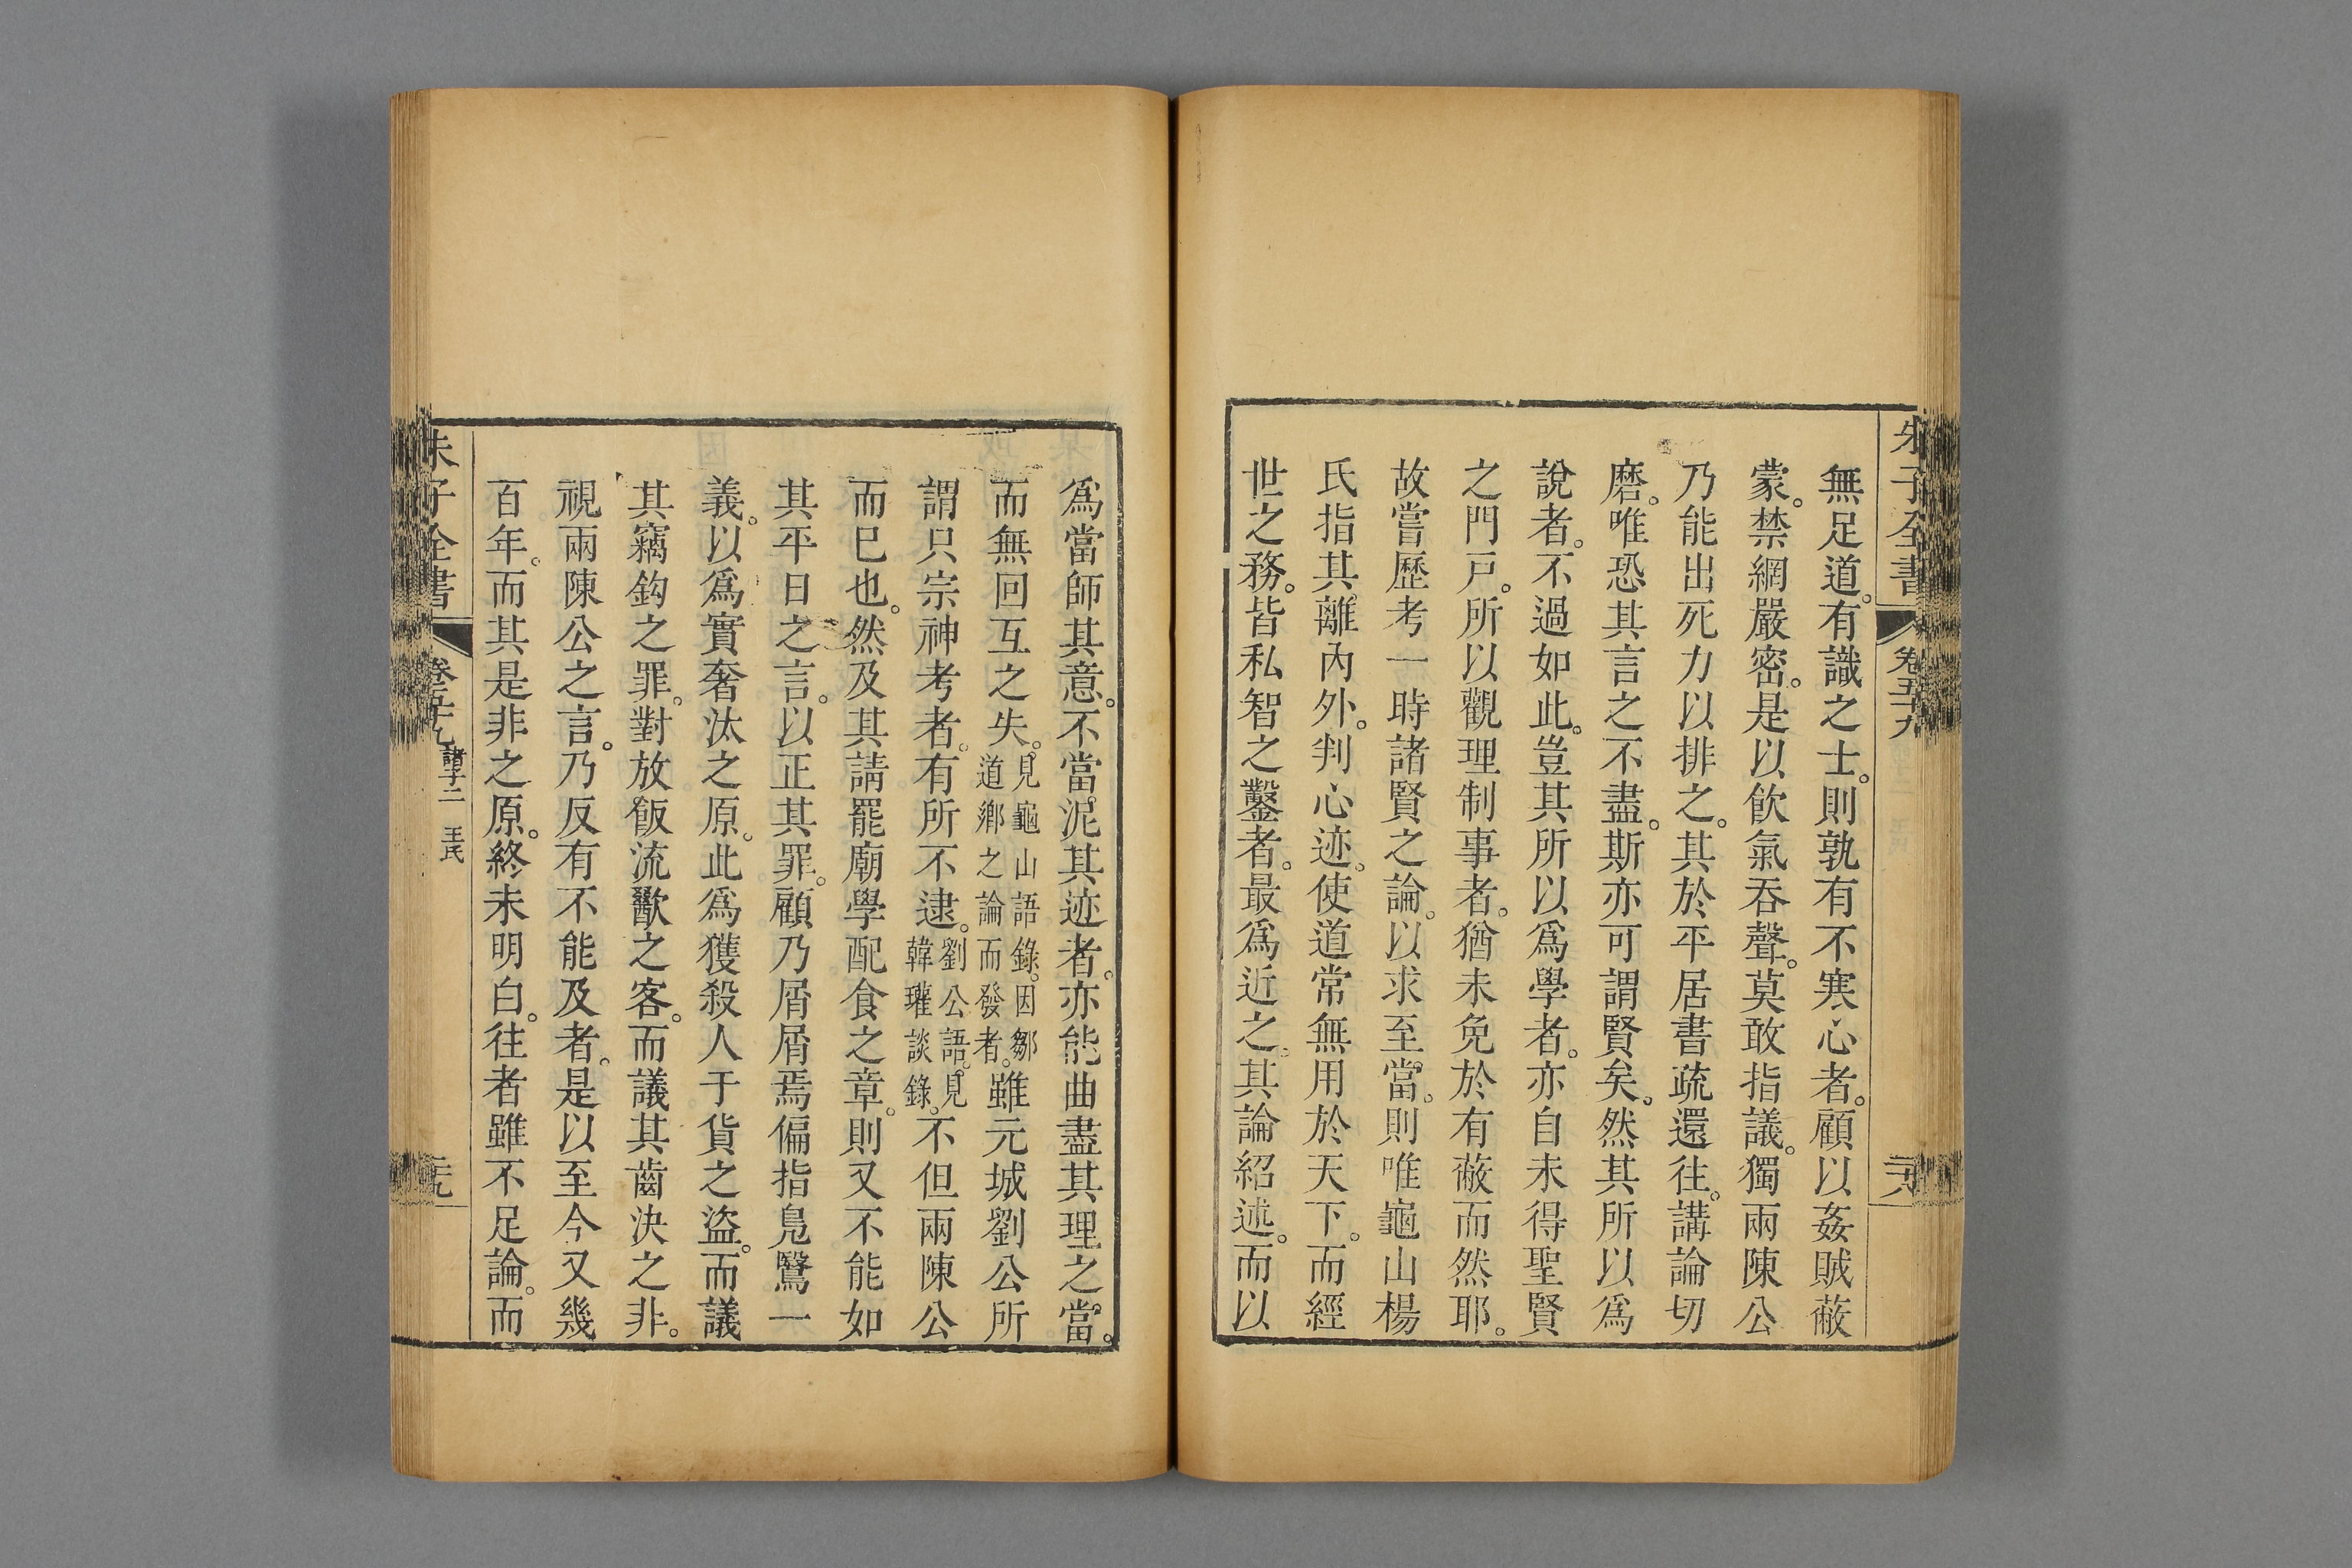 朱子全書 卷五十九 二十八
無足道。有識之士。則孰有不寒心者。顧以姦賊蔽
蒙。禁網嚴密。是以飲氣吞聲。莫敢指議。獨兩陳公
乃能出死力以排之。其於平居書疏還往。講論切
磨。唯恐其言之不盡。斯亦可謂賢矣。然其所以為
說者。不過如此。豈其所以爲學者。亦自未得聖賢
之門戸。所以觀理制事者。猶未免於有蔽而然耶。
故嘗歷考一時諸賢之論。以求至當。則唯龜山楊
氏指其離內外。判心迹。使道常無用於天下。而經
世之務。皆私智之鑿者。最爲近之。其論紹述。而以
爲當師其意。不當泥其迹者。亦能曲盡其理之當。
而無回互之失。見龜山語錄。因鄒道鄉之論而發者。雖元城劉公所
謂只宗神考者。有所不逮。劉公語。見韓瓘談錄。不但兩陳公
而已也。然及其請罷廟學配食之章。則又不能如
其平日之言。以正其罪。顧乃屑屑焉偏指鳧鷖一
義。以爲實奢汰之原。此爲獲殺人于貨之盜。而議
其竊鈎之罪。對放飯流歠之客。而議其齒決之非。
視兩陳公之言。乃反有不能及者。是以至今又幾
百年。而其是非之原。終未明白。往者雖不足論。而
朱子全書 卷五十九 諸子二 王氏 二十九